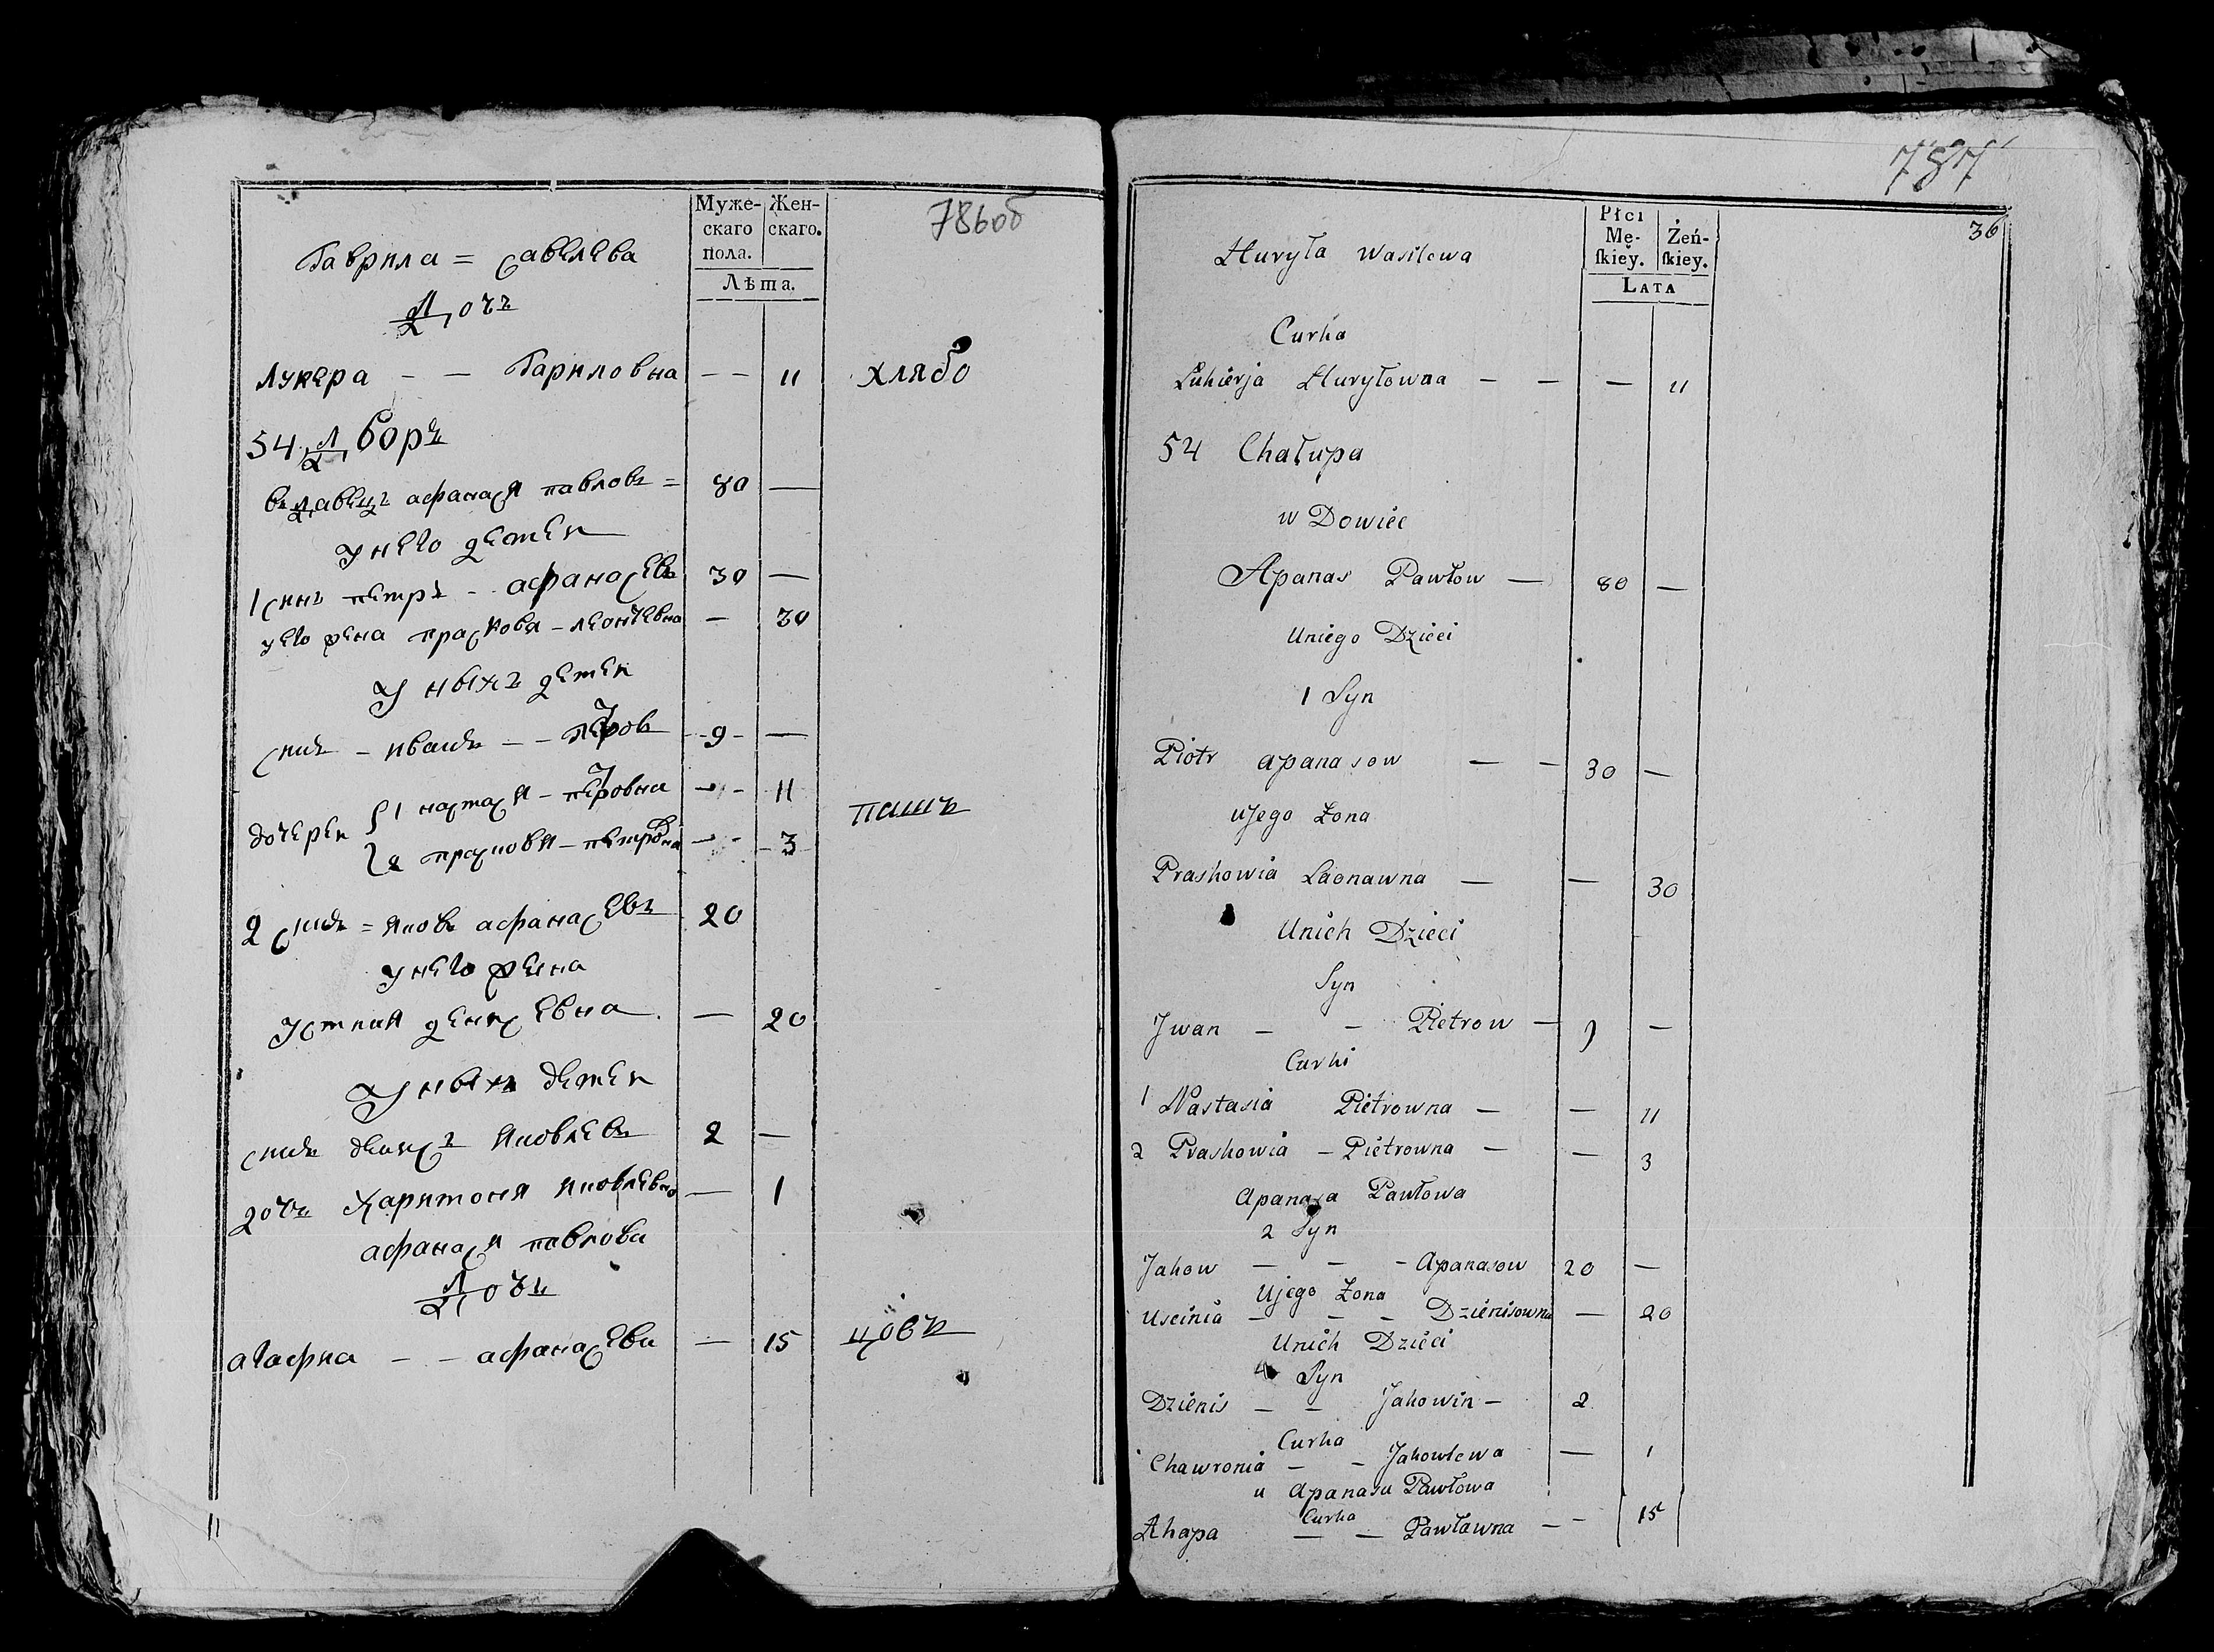 786об
Муже-
скаго
пола.
Жен-
скаго.
Лѣта.
Гаврила = Савелева
дочъ
Лукера - - Гариловна - - 11 хлябо
54 дворъ
вдавецъ афанася павловъ = 80 —
унего детеи
1 синъ петръ - афанасевъ 30 —
уего жена прасковя - леончевна — 30
У ныхъ детеи
синъ - иванъ - - петровъ - 9 - —
дочереи
1 настася - петровна — - 11
2 прасковя - петровна — - 3
пашъ
2 синъ = яковъ афанасевъ 20
унего жена
Устиния денисевна — 20
У ныхъ детеи
синъ денисъ яковлевъ 2 —
дочъ харитоня яковлевна — 1
афанася павлова
дочъ
агафиа - - афанасева — 15 цовъ
787
36
Płci
Mę-
ſkiey.
Żeń-
ſkiey.
LATA
Huryła Wasilewa
Curka
Łukierja Huryłowna — — — 11
54 Chałupa
w Dowiec
Apanas Pawłow — 80 —
Uniego Dzieci
1 Syn
Piotr apanasow — — 30 —
uJego Żona
Praskowia Laonawna — — 30
Unich Dzieci
Syn
Jwan — — Pietrow — 9 —
Curki
1 Nastasia Pietrowna — — 11
2 Praskowia — Pietrowna — — 3
Apanasa Pawłowa
2 Syn
Jakow — — — Apanasow 20 —
Ujego Żona
Uscinia — — — Dzienisowna — 20
Unich Dzieci
Syn
Dzienis — — Jakowin — 2
Curka
Chawronia — — Jakowlewa — 1
u Apanasa Pawłowa
Curka
Ahapa — — Pawławna — — 15